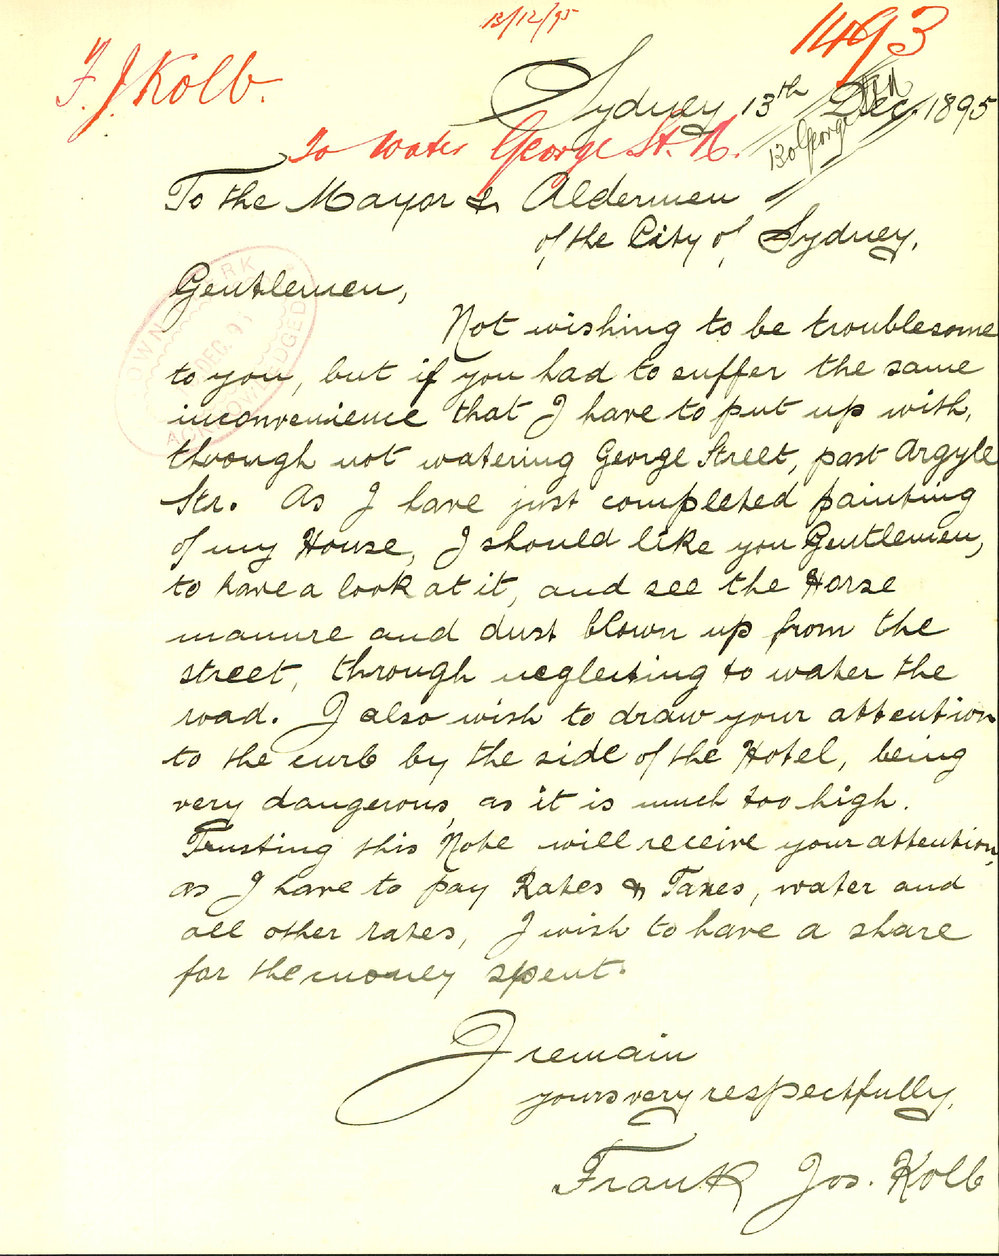 13/12/95
1493
F. J. Kolb.
Sydney 13th Dec. 1895
130 George
To water George St. N.
To the Mayor & Aldermen
of the City of Sydney.
Gentlemen,
Not wishing to be troublesome
to you, but if you had to suffer the same
inconvenience that I have to put up with,
through not watering George Street, past Argyle
Str. As I have just completed painting
of my House, I should like you Gentlemen,
to have a look at it, and see the Horse
manure and dust blown up from the
street, through neglecting to water the
road. I also wish to draw your attention
to the curb by the side of the Hotel, being
very dangerous, as it is much too high.
Trusting this Note will receive your attention,
as I have to pay Rates & Taxes, water and
all other rates, I wish to have a share
for the money spent.
I remain
yours very respectfully,
Frank Jos. Kolb
TOWN CLERK
DEC. 95
ACKNOWLEDGED